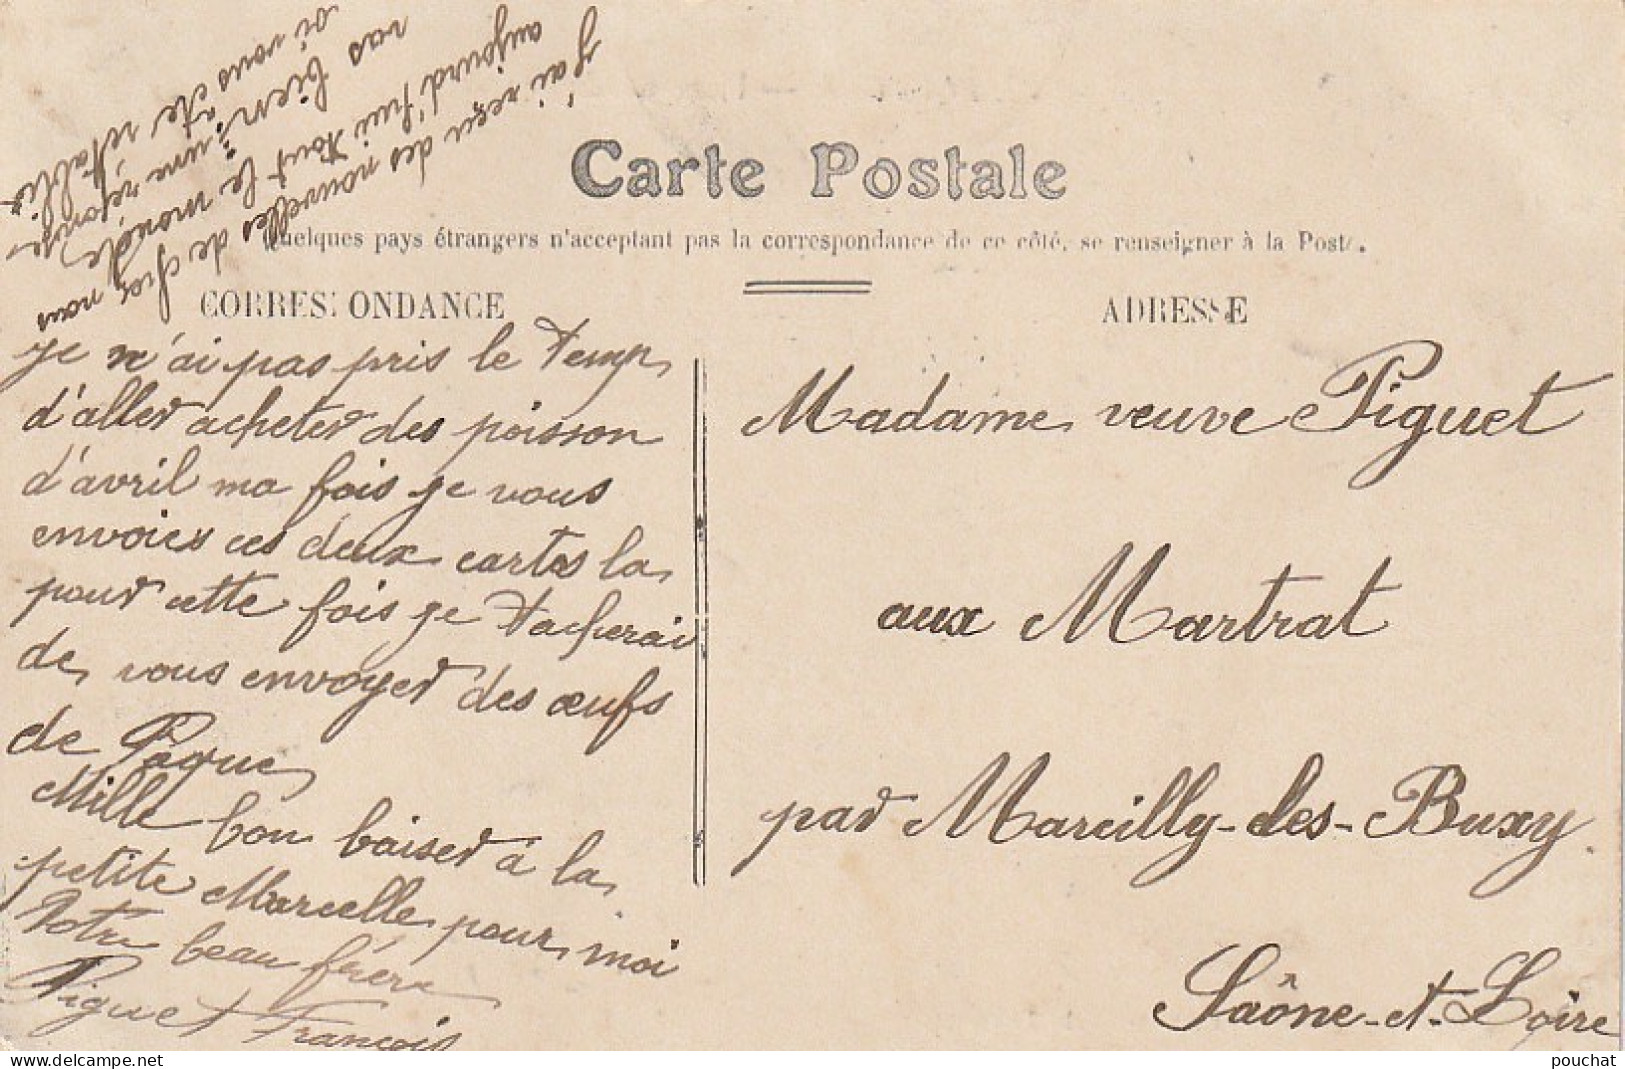 Carte Postale
Quelques pays étrangers n'acceptant pas la correspondance de ce côté, se renseigner à la Poste.
CORRESPONDANCE
ADRESSE
j'ai reçu des nouvelles de chez nous
aujourd'hui tout le monde
vas bien : une réponse
si vous ete retablie
je n'ai pas pris le temp
d'aller acheter des poisson
d'avril ma fois je vous
envoies ces deux cartes la
pour cette fois je tacherai
de vous envoyer des œufs
de Pâque
Mille bon baiser à la
petite Marcelle pour moi
Votre beau frère
Piguet François
Madame veuve Piguet
aux Martrat
par Marcilly-les-Buxy
Saône-et-Loire
pouchat